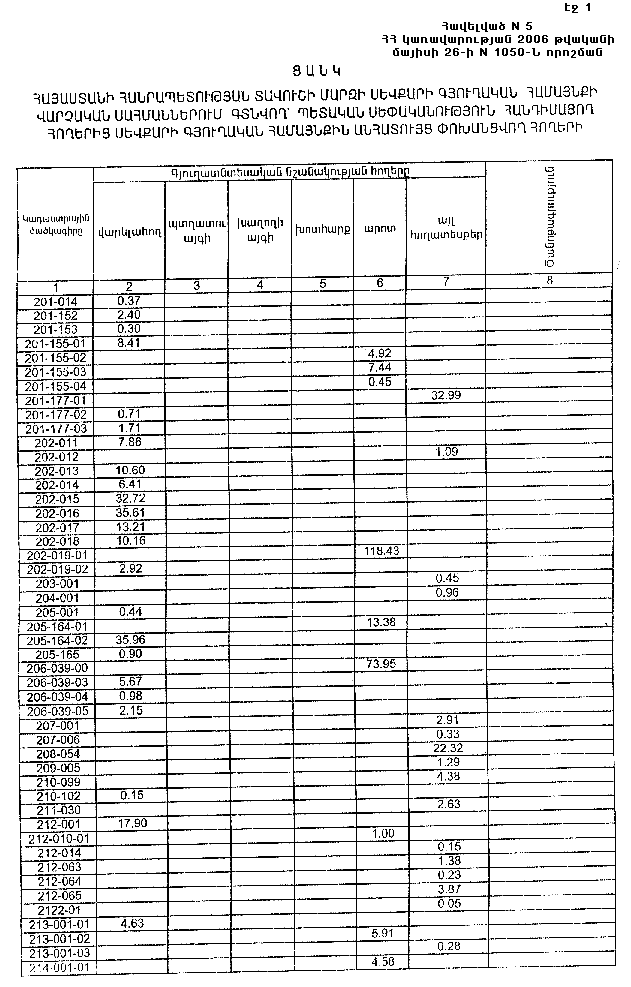 Էջ 1
Հավելված N 5
ՀՀ կառավարության 2006 թվականի
մայիսի 26-ի N 1050-Ն որոշման
Ց Ա Ն Կ
ՀԱՅԱՍՏԱՆԻ ՀԱՆՐԱՊԵՏՈՒԹՅԱՆ ՏԱՎՈՒՇԻ ՄԱՐԶԻ ՍԵՎՔԱՐԻ ԳՅՈՒՂԱԿԱՆ ՀԱՄԱՅՆՔԻ
ՎԱՐՉԱԿԱՆ ՍԱՀՄԱՆՆԵՐՈՒՄ ԳՏՆՎՈՂ՝ ՊԵՏԱԿԱՆ ՍԵՓԱԿԱՆՈՒԹՅՈՒՆ ՀԱՆԴԻՍԱՑՈՂ
ՀՈՂԵՐԻՑ ՍԵՎՔԱՐԻ ԳՅՈՒՂԱԿԱՆ ՀԱՄԱՅՆՔԻՆ ԱՆՀԱՏՈՒՅՑ ՓՈԽԱՆՑՎՈՂ ՀՈՂԵՐԻ
Կադաստրային ծածկագիրը
Գյուղատնտեսական նշանակության հողերը
Ծանոթագրություն
վարելահող պտղատու այգի խաղողի այգի խոտհարք արոտ այլ հողատեսքեր
1 2 3 4 5 6 7 8
201-014 0.37
201-152 2.40
201-153 0.30
201-155-01 8.41
201-155-02 4.92
201-155-03 7.44
201-155-04 0.45
201-177-01 32.99
201-177-02 0.71
201-177-03 1.71
202-011 7.86
202-012 1.09
202-013 10.60
202-014 6.41
202-015 32.72
202-016 35.61
202-017 13.21
202-018 10.16
202-019-01 118.43
202-019-02 2.92
203-001 0.45
204-001 0.96
205-001 0.44
205-164-01 13.38
205-164-02 35.96
205-165 0.90
206-039-00 73.95
206-039-03 5.67
206-039-04 0.98
206-039-05 2.15
207-001 2.91
207-006 0.33
208-054 22.32
209-005 1.29
210-099 4.38
210-102 0.15
211-030 2.63
212-001 17.90
212-010-01 1.00
212-014 0.15
212-063 1.38
212-064 0.23
212-065 3.87
2122-01 0.05
213-001-01 4.63
213-001-02 5.91
213-001-03 0.28
214-001-01 4.58